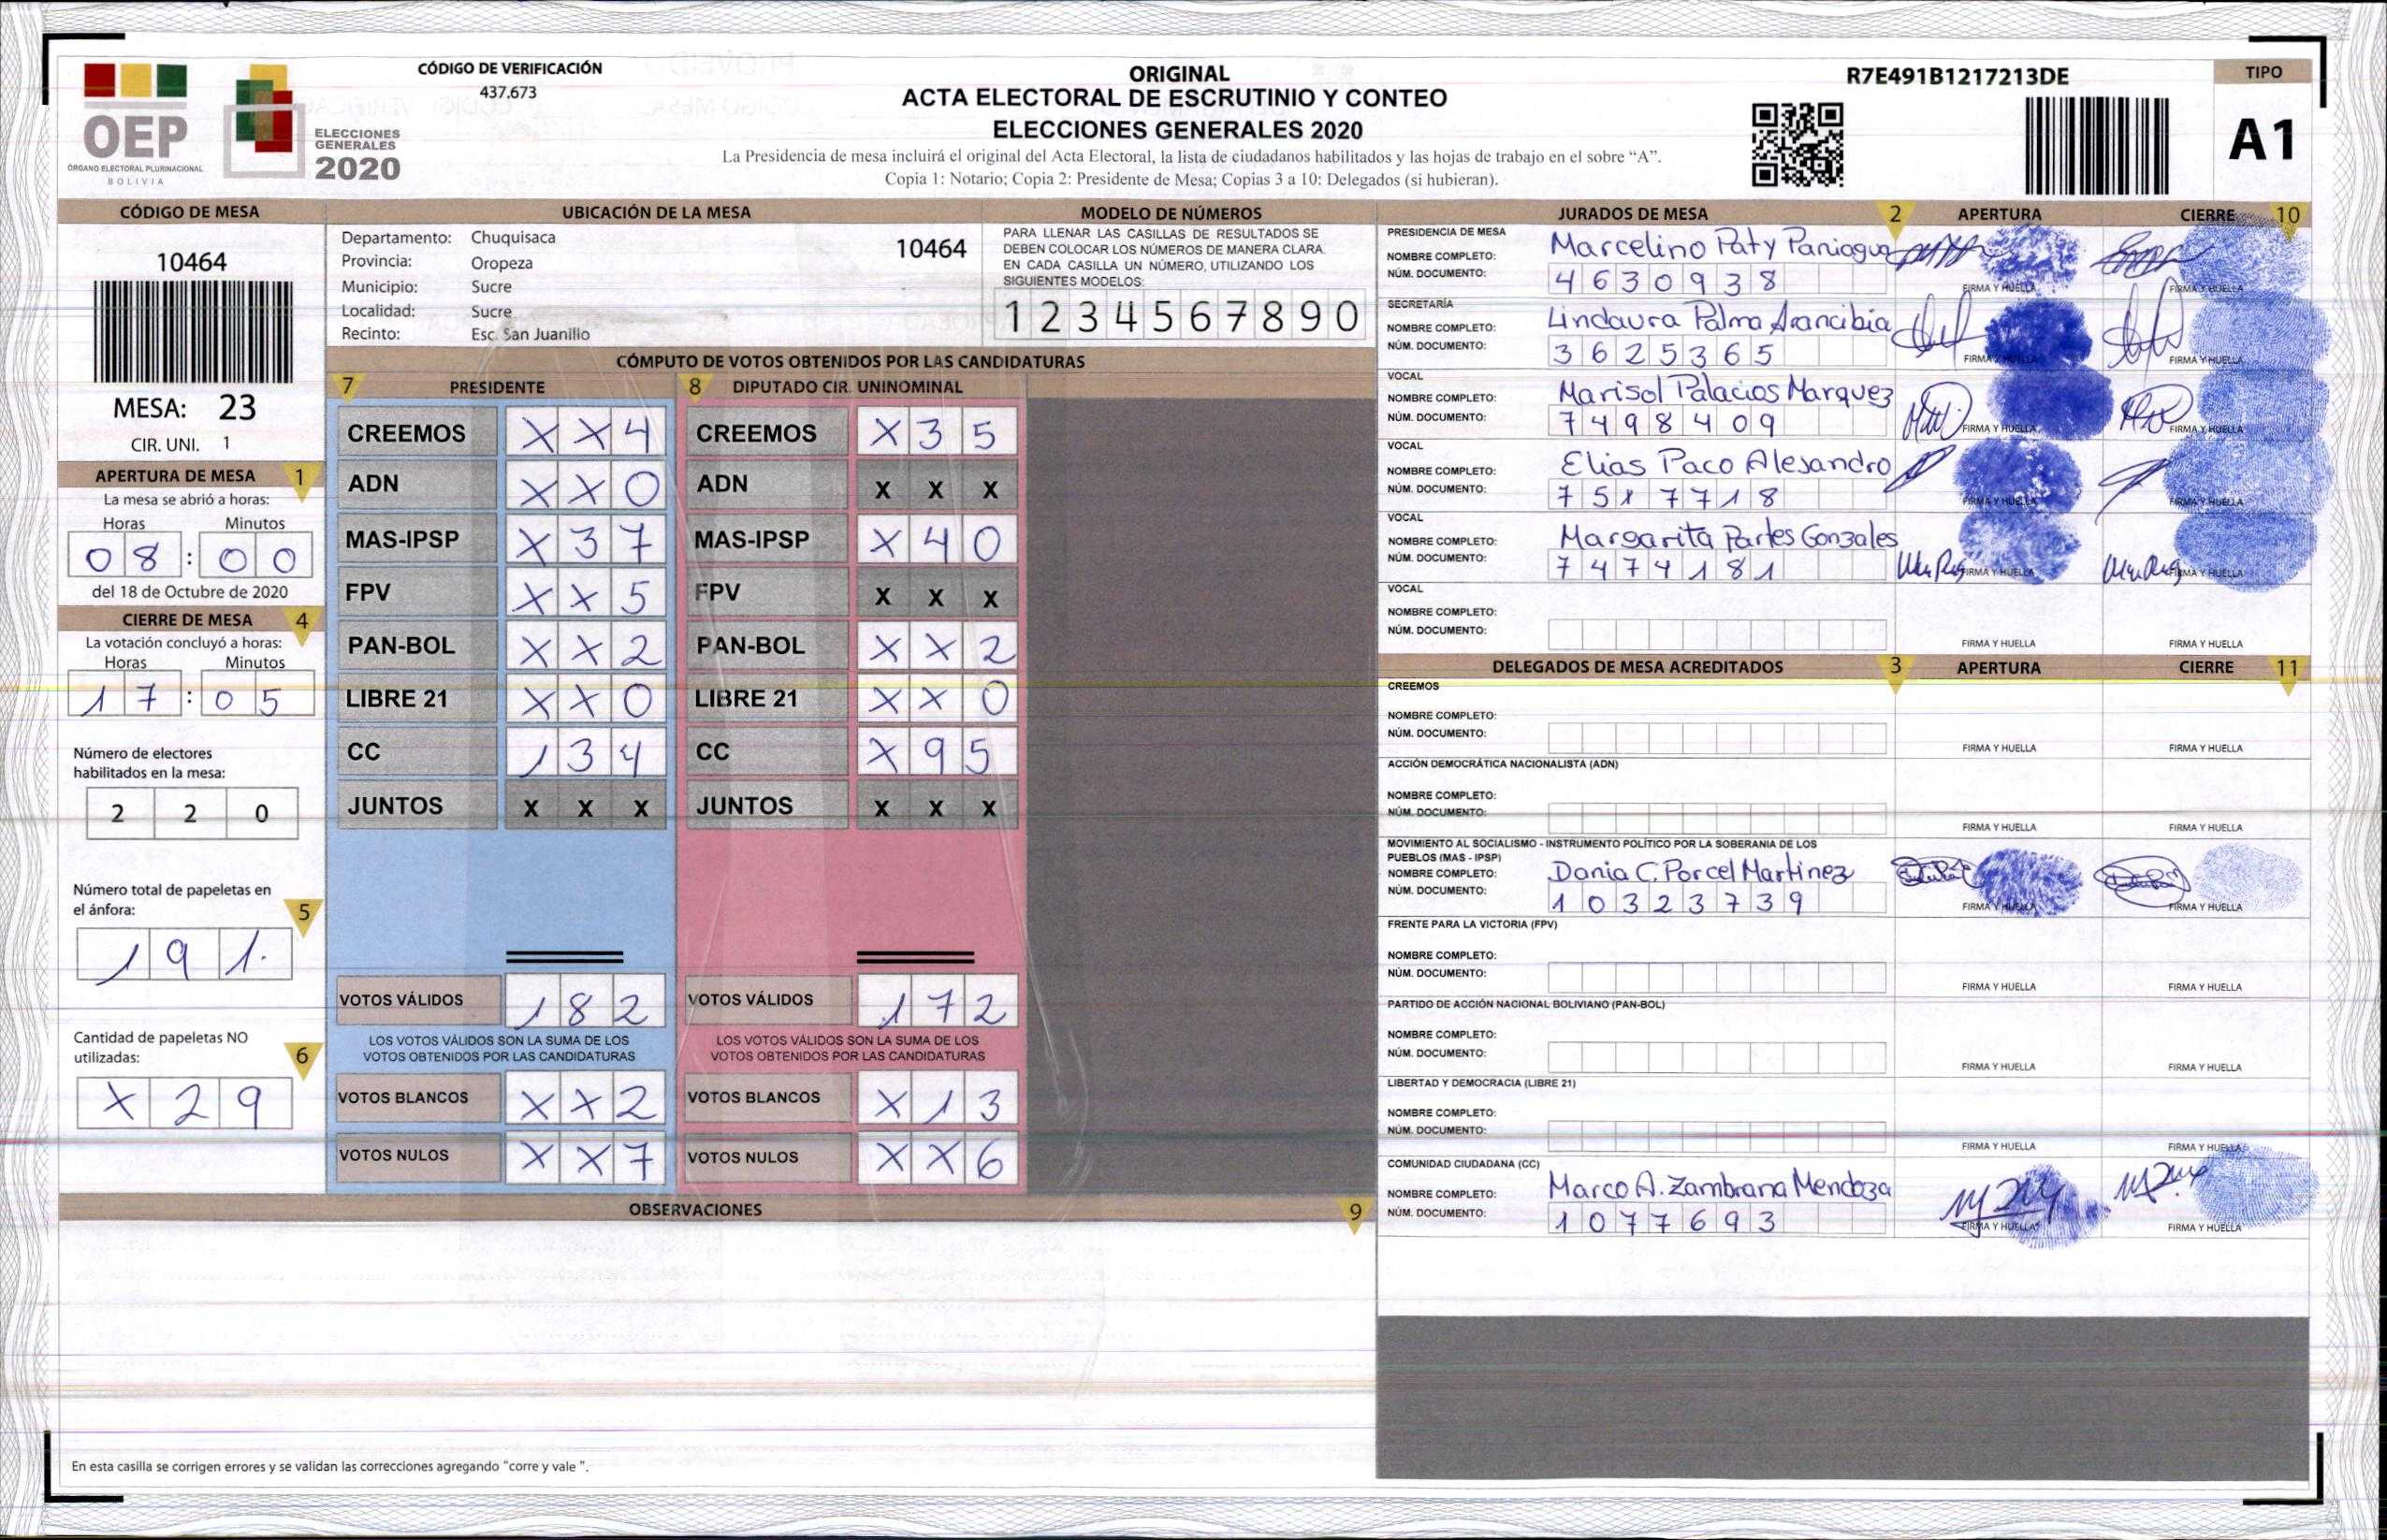 OEP
ÓRGANO ELECTORAL PLURINACIONAL
BOLIVIA
ELECCIONES
GENERALES
2020
CÓDIGO DE VERIFICACIÓN
437.673
ORIGINAL
ACTA ELECTORAL DE ESCRUTINIO Y CONTEO
ELECCIONES GENERALES 2020
La Presidencia de mesa incluirá el original del Acta Electoral, la lista de ciudadanos habilitados y las hojas de trabajo en el sobre “A”.
Copia 1: Notario; Copia 2: Presidente de Mesa; Copias 3 a 10: Delegados (si hubieran).
R7E491B1217213DE
TIPO
A1
CÓDIGO DE MESA
10464
MESA: 23
CIR. UNI. 1
APERTURA DE MESA 1
La mesa se abrió a horas:
Horas Minutos
08:00
del 18 de Octubre de 2020
CIERRE DE MESA 4
La votación concluyó a horas:
Horas Minutos
17:05
Número de electores
habilitados en la mesa:
2 2 0
Número total de papeletas en
el ánfora: 5
1 9 1
Cantidad de papeletas NO
utilizadas: 6
X 2 9
UBICACIÓN DE LA MESA
Departamento: Chuquisaca 10464
Provincia: Oropeza
Municipio: Sucre
Localidad: Sucre
Recinto: Esc. San Juanillo
MODELO DE NÚMEROS
PARA LLENAR LAS CASILLAS DE RESULTADOS SE
DEBEN COLOCAR LOS NÚMEROS DE MANERA CLARA.
EN CADA CASILLA UN NÚMERO, UTILIZANDO LOS
SIGUIENTES MODELOS:
1 2 3 4 5 6 7 8 9 0
CÓMPUTO DE VOTOS OBTENIDOS POR LAS CANDIDATURAS
7 PRESIDENTE 8 DIPUTADO CIR. UNINOMINAL
CREEMOS X X 4 CREEMOS X 3 5
ADN X X 0 ADN X X X
MAS-IPSP X 3 7 MAS-IPSP X 4 0
FPV X X 5 FPV X X X
PAN-BOL X X 2 PAN-BOL X X 2
LIBRE 21 X X 0 LIBRE 21 X X 0
CC 1 3 4 CC X 9 5
JUNTOS X X X JUNTOS X X X
VOTOS VÁLIDOS 1 8 2 VOTOS VÁLIDOS 1 7 2
LOS VOTOS VÁLIDOS SON LA SUMA DE LOS LOS VOTOS VÁLIDOS SON LA SUMA DE LOS
VOTOS OBTENIDOS POR LAS CANDIDATURAS VOTOS OBTENIDOS POR LAS CANDIDATURAS
VOTOS BLANCOS X X 2 VOTOS BLANCOS X 1 3
VOTOS NULOS X X 7 VOTOS NULOS X X 6
OBSERVACIONES 9
En esta casilla se corrigen errores y se validan las correcciones agregando "corre y vale ".
JURADOS DE MESA 2 APERTURA CIERRE 10
PRESIDENCIA DE MESA
NOMBRE COMPLETO: Marcelino Paty Paniagua
NÚM. DOCUMENTO: 4630938
FIRMA Y HUELLA FIRMA Y HUELLA
SECRETARÍA
NOMBRE COMPLETO: Lindaura Palma Arancibia
NÚM. DOCUMENTO: 3625365
FIRMA Y HUELLA FIRMA Y HUELLA
VOCAL
NOMBRE COMPLETO: Marisol Palacios Marquez
NÚM. DOCUMENTO: 7498409
FIRMA Y HUELLA FIRMA Y HUELLA
VOCAL
NOMBRE COMPLETO: Elias Paco Alejandro
NÚM. DOCUMENTO: 7517718
FIRMA Y HUELLA FIRMA Y HUELLA
VOCAL
NOMBRE COMPLETO: Margarita Partes Gonzales
NÚM. DOCUMENTO: 7474181
FIRMA Y HUELLA FIRMA Y HUELLA
VOCAL
NOMBRE COMPLETO:
NÚM. DOCUMENTO:
FIRMA Y HUELLA FIRMA Y HUELLA
DELEGADOS DE MESA ACREDITADOS 3 APERTURA CIERRE 11
CREEMOS
NOMBRE COMPLETO:
NÚM. DOCUMENTO:
FIRMA Y HUELLA FIRMA Y HUELLA
ACCIÓN DEMOCRÁTICA NACIONALISTA (ADN)
NOMBRE COMPLETO:
NÚM. DOCUMENTO:
FIRMA Y HUELLA FIRMA Y HUELLA
MOVIMIENTO AL SOCIALISMO - INSTRUMENTO POLÍTICO POR LA SOBERANIA DE LOS
PUEBLOS (MAS - IPSP)
NOMBRE COMPLETO: Dania C. Porcel Martinez
NÚM. DOCUMENTO: 10323739
FIRMA Y HUELLA FIRMA Y HUELLA
FRENTE PARA LA VICTORIA (FPV)
NOMBRE COMPLETO:
NÚM. DOCUMENTO:
FIRMA Y HUELLA FIRMA Y HUELLA
PARTIDO DE ACCIÓN NACIONAL BOLIVIANO (PAN-BOL)
NOMBRE COMPLETO:
NÚM. DOCUMENTO:
FIRMA Y HUELLA FIRMA Y HUELLA
LIBERTAD Y DEMOCRACIA (LIBRE 21)
NOMBRE COMPLETO:
NÚM. DOCUMENTO:
FIRMA Y HUELLA FIRMA Y HUELLA
COMUNIDAD CIUDADANA (CC)
NOMBRE COMPLETO: Marco A. Zambrana Mendoza
NÚM. DOCUMENTO: 1077693
FIRMA Y HUELLA FIRMA Y HUELLA